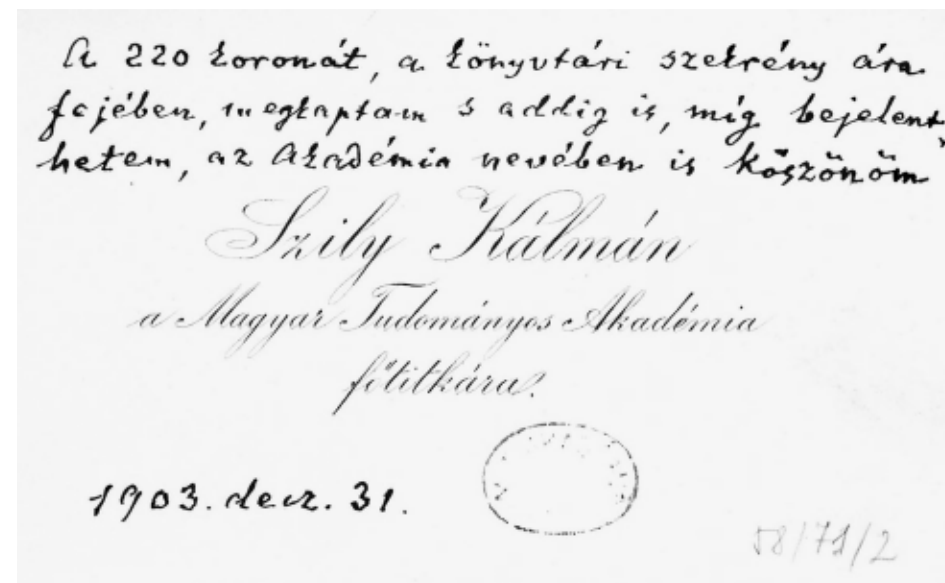 A 220 koronát, a könyvtári szekrény ára
fejében, megkaptam s addig is, míg bejelent-
hetem, az Akadémia nevében is köszönöm
Szily Kálmán
a Magyar Tudományos Akadémia
főtitkára.
1903. decz. 31.
58/71/2